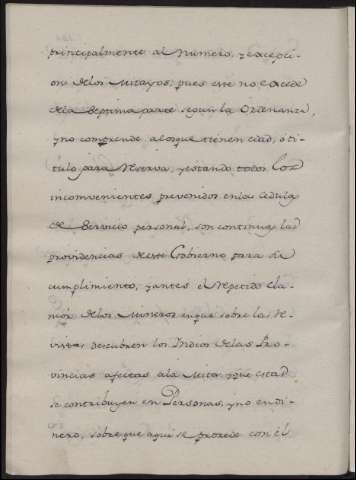 principalmente al Numero, y excepci-
on de los Mitayos, pues este no exceda
de la Septima parte segun la Ordenanza,
y no comprende a los que tienen edad, ó ti-
tulo para reserva, y estando todos los
inconvenientes prevenidos en las Cedulas
de Servicio personal, son continuas las
providencias de este Gobierno para su
cumplimiento, y antes el repetido cla-
mor de los Mineros en que sobre las re-
visitas descubren los Indios de las Pro-
vincias afectas a la Mita, y que estas
se contribuyen en Personas, y no en di-
nero, sobre que aqui se procede con el